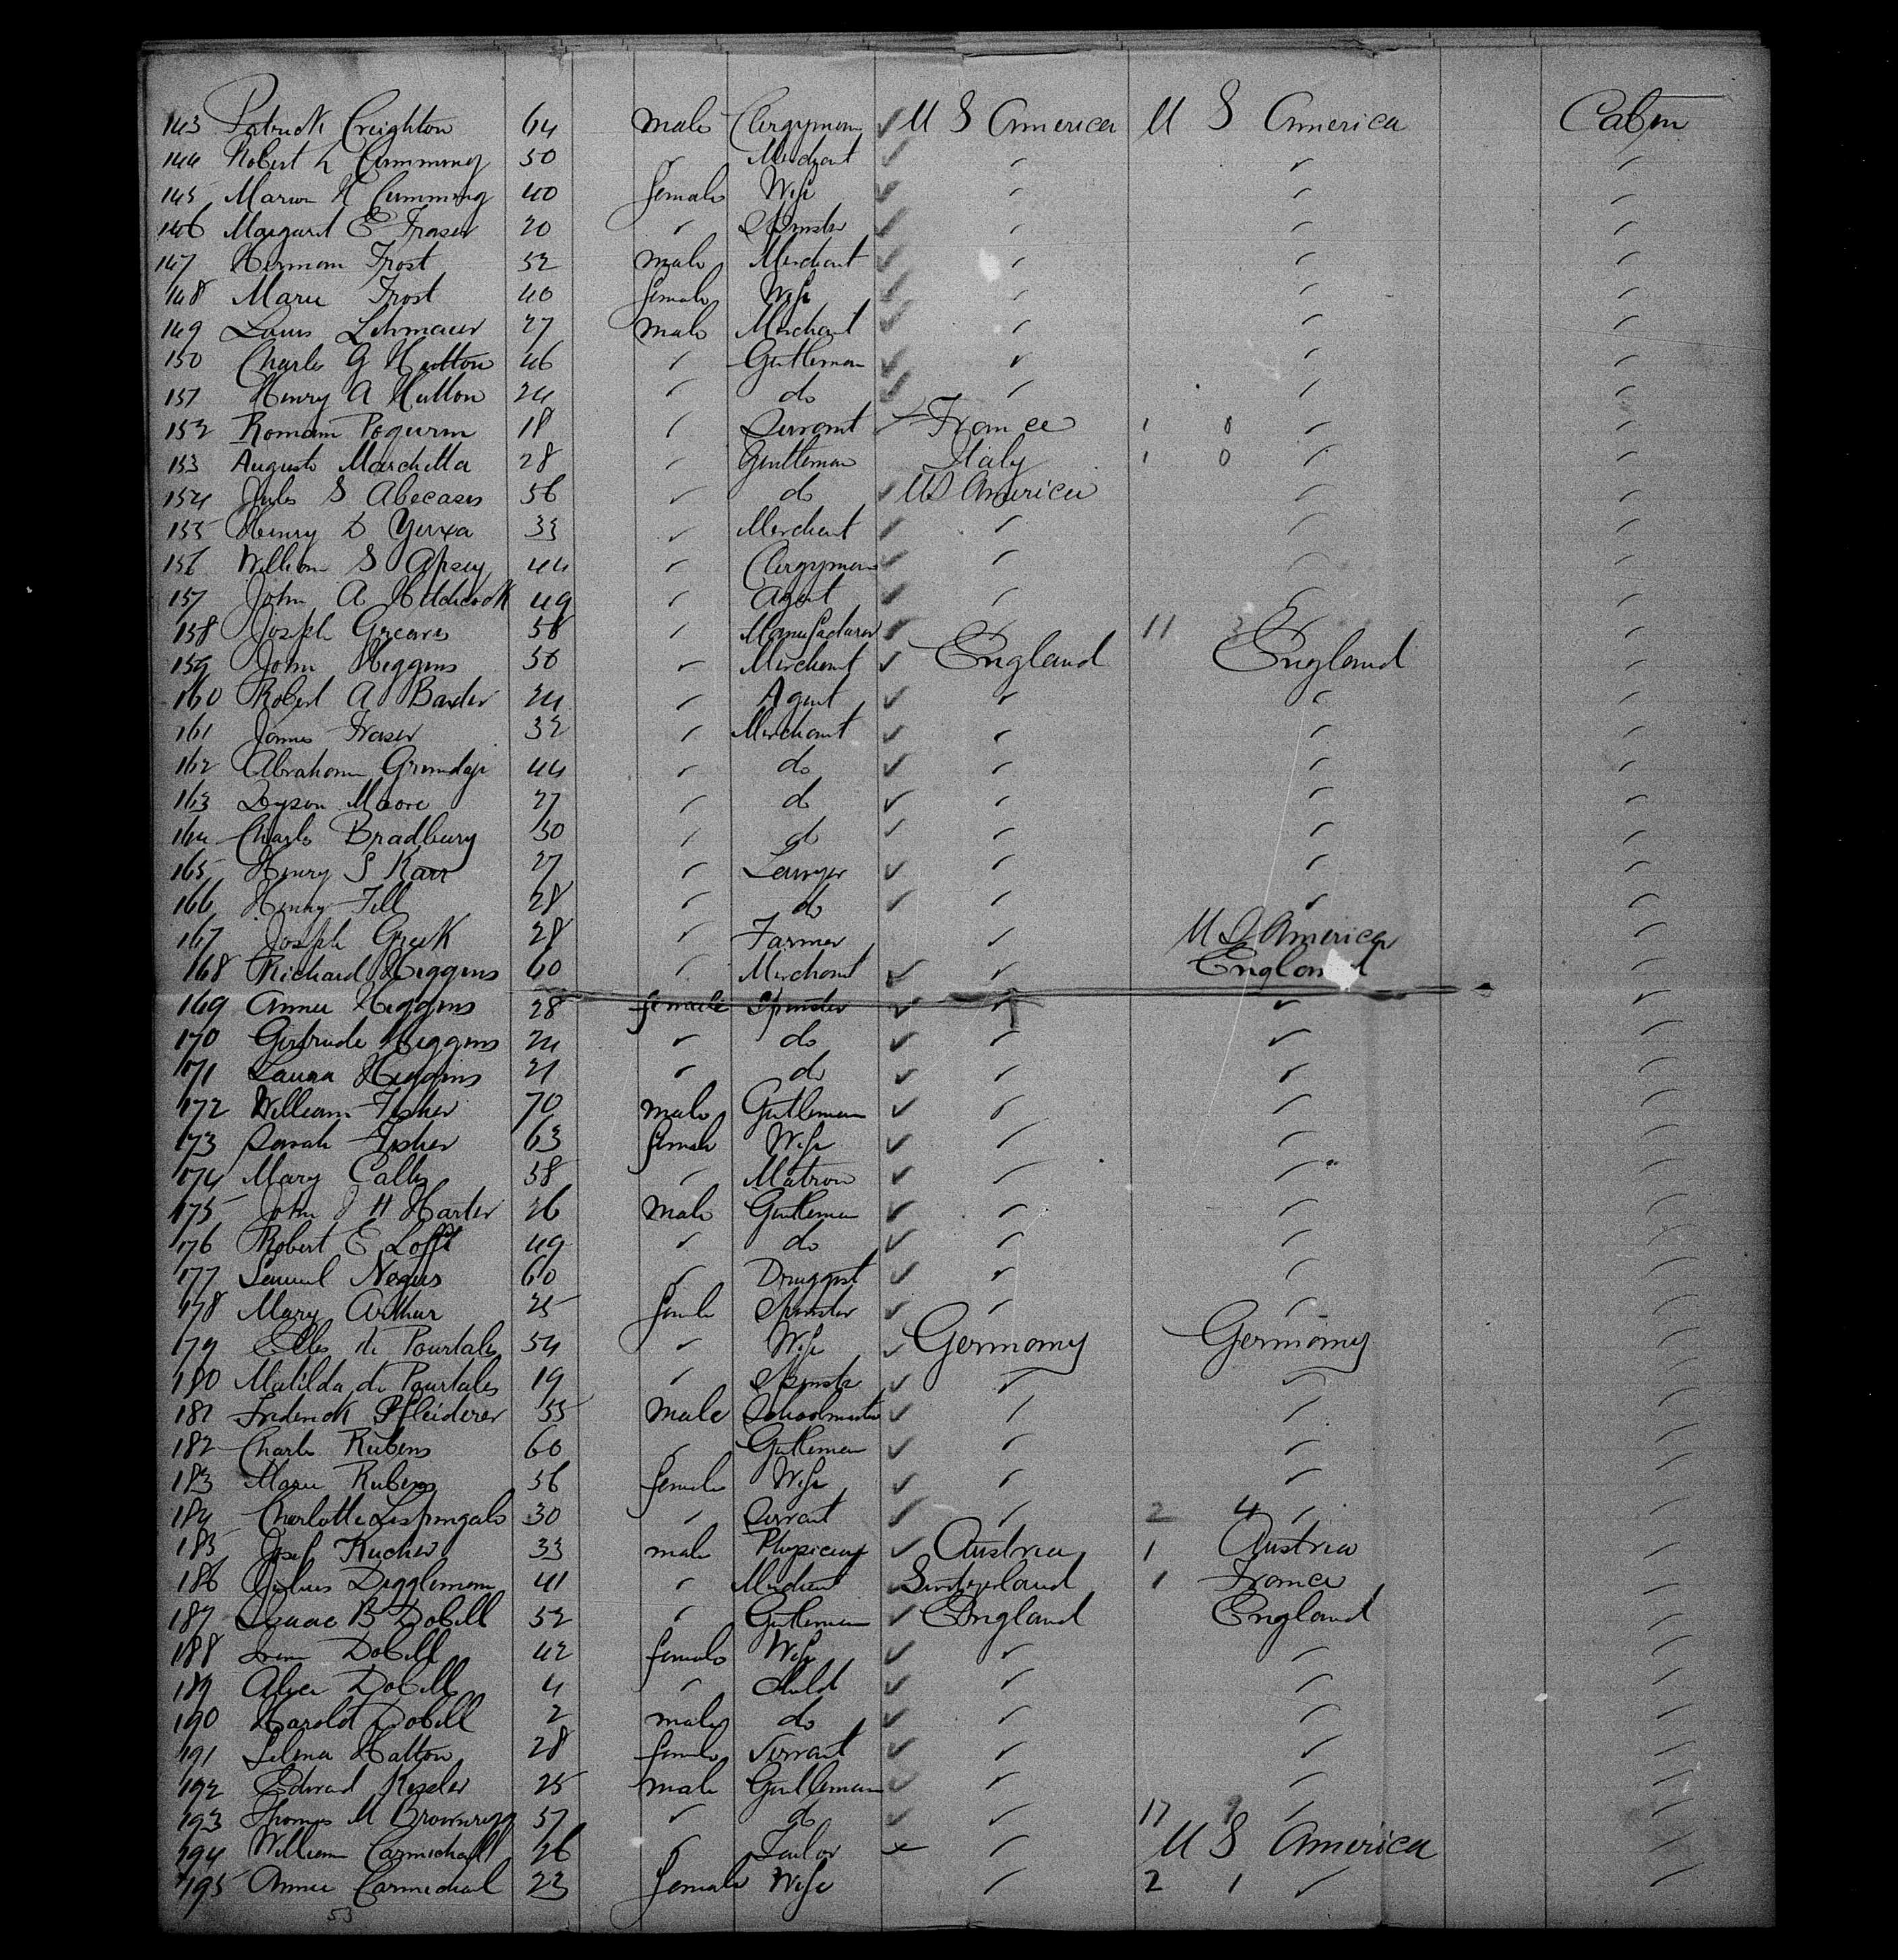 143 Patrick Creighton 64 male Clergyman ✓ U S America U S America Cabin
144 Robert L Cumming 50 ✓ Merchant ✓ ✓ ✓ ✓
145 Marion H Cumming 40 female Wife ✓ ✓ ✓ ✓
146 Margaret E Fraser 20 ✓ Spinster ✓ ✓ ✓ ✓
147 Herman Frost 52 male Merchant ✓ ✓ ✓ ✓
148 Marie Frost 40 female Wife ✓ ✓ ✓ ✓
149 Louis Lehmaier 27 male Merchant ✓ ✓ ✓ ✓
150 Charles G Hutton 46 ✓ Gentleman ✓ ✓ ✓ ✓
151 Henry A Hutton 24 ✓ do ✓ ✓ ✓ ✓
152 Romain 18 ✓ Servant ✓ France 1 0 ✓ ✓
153 Augusto Marchetta 28 ✓ Gentleman Italy 1 0 ✓ ✓
154 Jules S Abecasis 56 ✓ do ✓ US America ✓ ✓
155 Henry D Yerxa 33 ✓ Merchant ✓ ✓ ✓ ✓
156 William S Apsey 44 ✓ Clergyman ✓ ✓ ✓ ✓
157 John A Hitchcock 49 ✓ Agent ✓ ✓ ✓ ✓
158 Joseph Greaves 58 ✓ Manufacturer ✓ ✓ 11 3 ✓ ✓
159 John Higgins 50 ✓ Merchant ✓ England England ✓
160 Robert A Baxter 24 ✓ Agent ✓ ✓ ✓ ✓
161 James Fraser 32 ✓ Merchant ✓ ✓ ✓ ✓
162 Abraham Grundage 44 ✓ do ✓ ✓ ✓ ✓
163 Dyson Moore 27 ✓ do ✓ ✓ ✓ ✓
164 Charles Bradbury 30 ✓ do ✓ ✓ ✓ ✓
165 Henry S Karr 27 ✓ Lawyer ✓ ✓ ✓ ✓
166 Henry Fell 28 ✓ do ✓ ✓ ✓ ✓
167 Joseph Greek 28 ✓ Farmer ✓ U S America ✓
168 Richard Higgins 60 ✓ Merchant ✓ ✓ England ✓
169 Annie Higgins 28 female Spinster ✓ ✓ ✓ ✓
170 Gertrude Higgins 24 ✓ do ✓ ✓ ✓ ✓
171 Laura Higgins 21 ✓ do ✓ ✓ ✓ ✓
172 William Fisher 70 male Gentleman ✓ ✓ ✓ ✓
173 Sarah Fisher 63 female Wife ✓ ✓ ✓ ✓
174 Mary 58 ✓ Matron ✓ ✓ ✓ ✓
175 John J H Harter 26 male Gentleman ✓ ✓ ✓ ✓
176 Robert E Lofft 49 ✓ do ✓ ✓ ✓ ✓
177 Samuel Negus 60 ✓ Druggist ✓ ✓ ✓ ✓
178 Mary Arthur 25 female Spinster ✓ ✓ ✓ ✓
179 de Pourtales 54 ✓ Wife ✓ Germany Germany ✓
180 Matilda de Pourtales 19 ✓ Spinster ✓ ✓ ✓ ✓
181 Frederick Pfleiderer 55 male Schoolmaster ✓ ✓ ✓ ✓
182 Charles Rubens 60 ✓ Gentleman ✓ ✓ ✓ ✓
183 Marie Rubens 56 female Wife ✓ ✓ ✓ ✓
184 Charlotte 30 ✓ Servant ✓ ✓ 2 4 ✓ ✓
185 Josef Kucher 33 male Physician ✓ Austria 1 Austria ✓
186 Julius Digglemann 41 ✓ Merchant ✓ Switzerland 1 France ✓
187 Isaac B Dobell 52 ✓ Gentleman ✓ England England ✓
188 Irene Dobell 42 female Wife ✓ ✓ ✓ ✓
189 Alyce Dobell 4 ✓ child ✓ ✓ ✓ ✓
190 Harold Dobell 2 male do ✓ ✓ ✓ ✓
191 Selina Hatton 28 female Servant ✓ ✓ ✓ ✓
192 Edward Kessler 25 male Gentleman ✓ ✓ ✓ ✓
193 Thomas M Brownrigg 57 ✓ do ✓ ✓ 17 9 ✓ ✓
194 William Carmichall 26 ✓ Tailor × ✓ U S America ✓
195 Annie Carmichael 23 female Wife ✓ 2 1 ✓ ✓
53